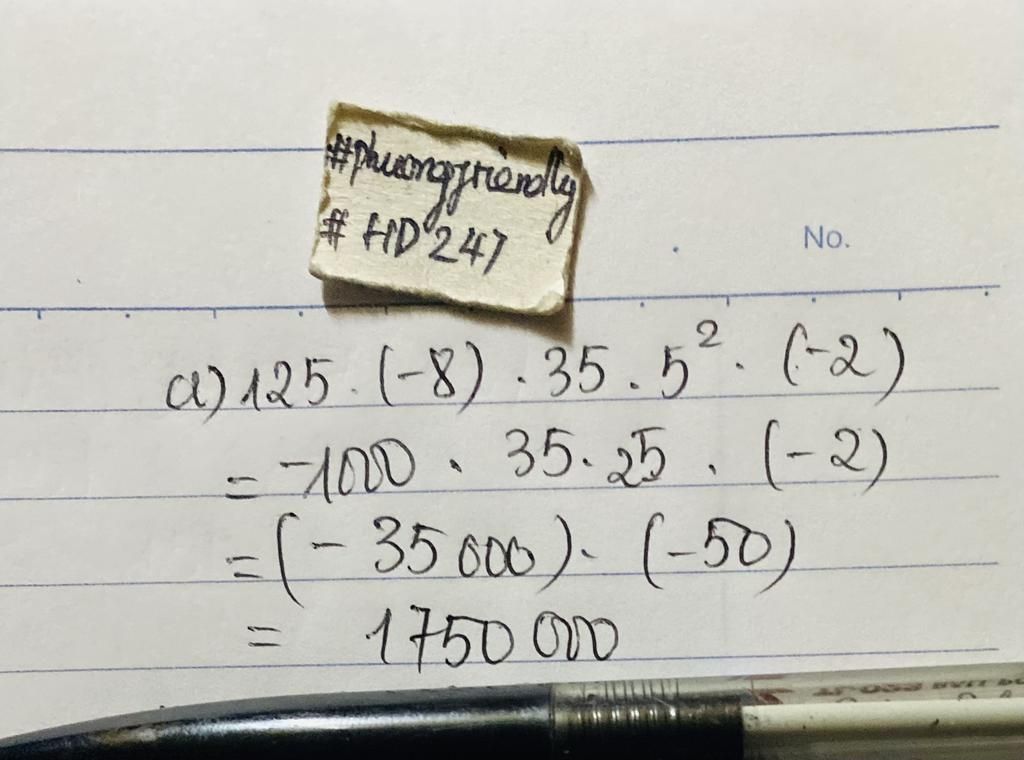 #phuongfriendly
# HD 247
No.
a) 125 . (-8) . 35 . 5² . (-2)
= -1000 . 35 . 25 . (-2)
= (- 35 000) . (-50)
= 1750 000